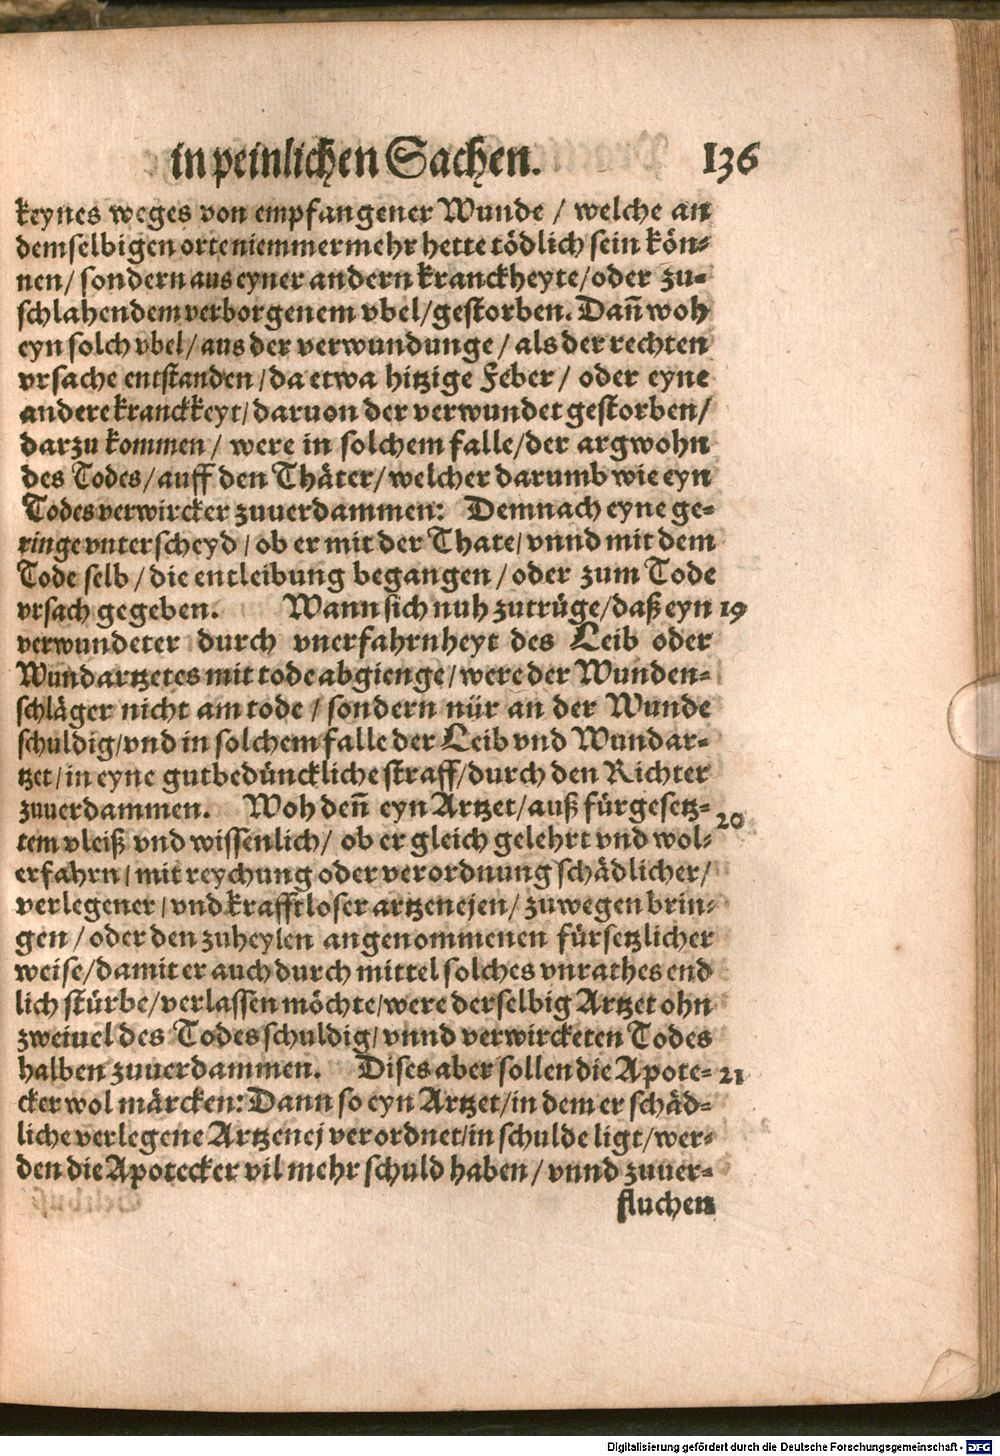 in peinlichen Sachen. 136
keynes weges von empfangener Wunde / welche an
demselbigen orte niemmermehr hette tödlich sein kön-
nen / sondern aus eyner andern kranckheyte / oder zu-
schlahendem verborgenem vbel / gestorben. Dañ woh
eyn solch vbel / aus der verwundunge / als der rechten
vrsache entstanden / da etwa hitzige Feber / oder eyne
andere kranckkeyt / daruon der verwundet gestorben /
darzu kommen / were in solchem falle / der argwohn
des Todes / auff den Thäter / welcher darumb wie eyn
Todes verwircker zuuerdammen: Demnach eyne ge-
ringe vnterscheyd / ob er mit der Thate / vnnd mit dem
Tode selb / die entleibung begangen / oder zum Tode
vrsach gegeben. Wann sich nuh zutrüge / daß eyn 19
verwundeter durch vnerfahrnheyt des Leib oder
Wundartzetes mit tode abgienge / were der Wunden-
schläger nicht am tode / sondern nür an der Wunde
schuldig / vnd in solchem falle der Leib vnd Wundar-
tzet / in eyne gutbedünckliche straff / durch den Richter
zuuerdammen. Woh deñ eyn Artzet / auß fürgesetz- 20
tem vleiß vnd wissenlich / ob er gleich gelehrt vnd wol-
erfahrn / mit reychung oder verordnung schädlicher /
verlegener / vnd krafftloser artzenejen / zuwegen brin-
gen / oder den zuheylen angenommenen fürsetzlicher
weise / damit er auch durch mittel solches vnrathes end
lich stürbe / verlassen möchte / were derselbig Artzet ohn
zweiuel des Todes schuldig / vnnd verwircketen Todes
halben zuuerdammen. Dises aber sollen die Apote- 21
cker wol märcken: Dann so eyn Artzet / in dem er schäd-
liche verlegene Artzenej verordnet / in schulde ligt / wer-
den die Apotecker vil mehr schuld haben / vnnd zuuer-
fluchen
Digitalisierung gefördert durch die Deutsche Forschungsgemeinschaft - DFG